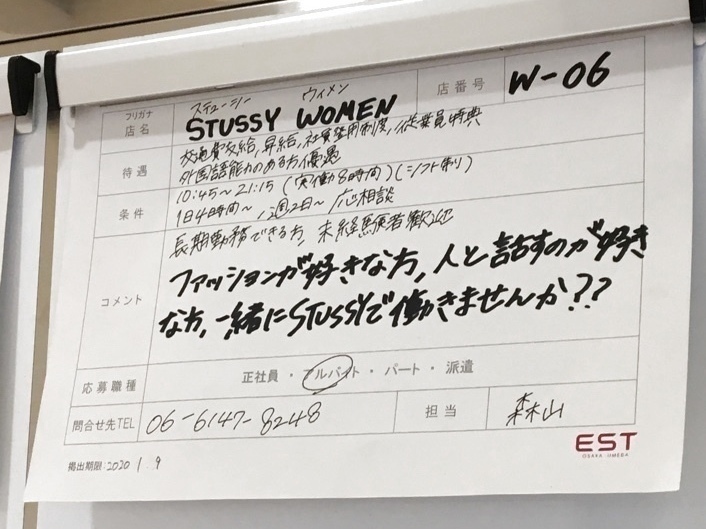 フリガナ ステューシー ウィメン
店名 STUSSY WOMEN 店番号 W-06
待遇 交通費支給, 昇給, 社員登用制度, 従業員特典
外国語能力のある方優遇
条件 10:45〜21:15 (実働8時間)(シフト制)
1日4時間〜, 週2日〜 応相談
長期勤務できる方, 未経験者歓迎
コメント ファッションが好きな方, 人と話すのが好き
な方, 一緒にSTUSSYで働きませんか??
応募職種 正社員・アルバイト・パート・派遣
問合せ先TEL 06-6147-8248 担当 森山
掲出期限:2020 1 9
EST
OSAKA UMEDA